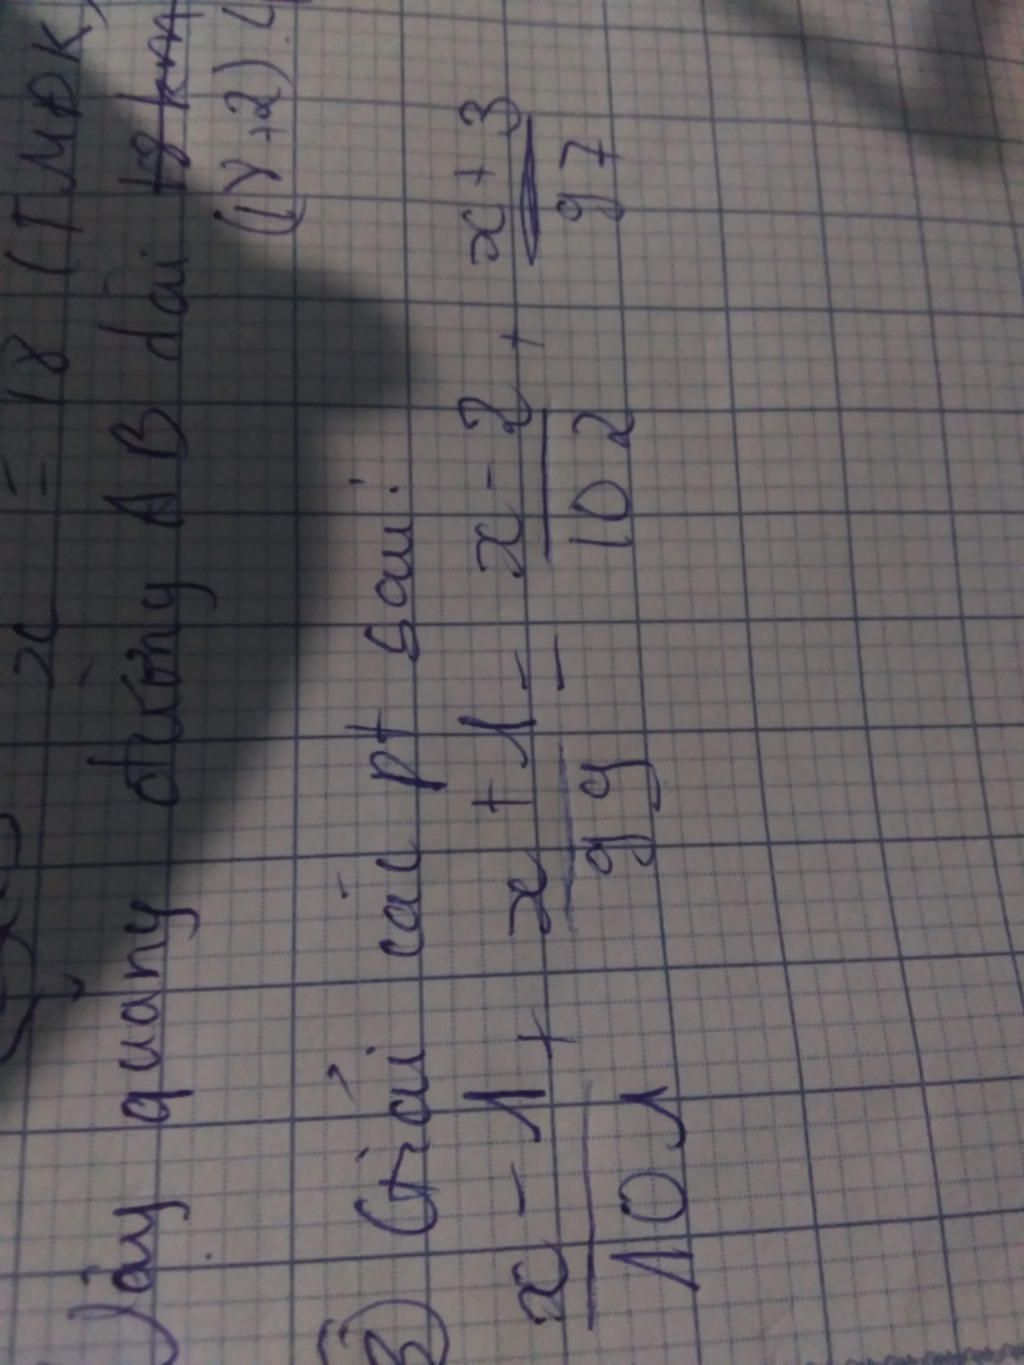 x = 18 (TMĐK)
Vậy quãng đường AB dài 18 km
(1Y+2)
3) Giải các pt sau:
x - 1 / 101 + x + 1 / 99 = x - 2 / 102 + x + 3 / 97